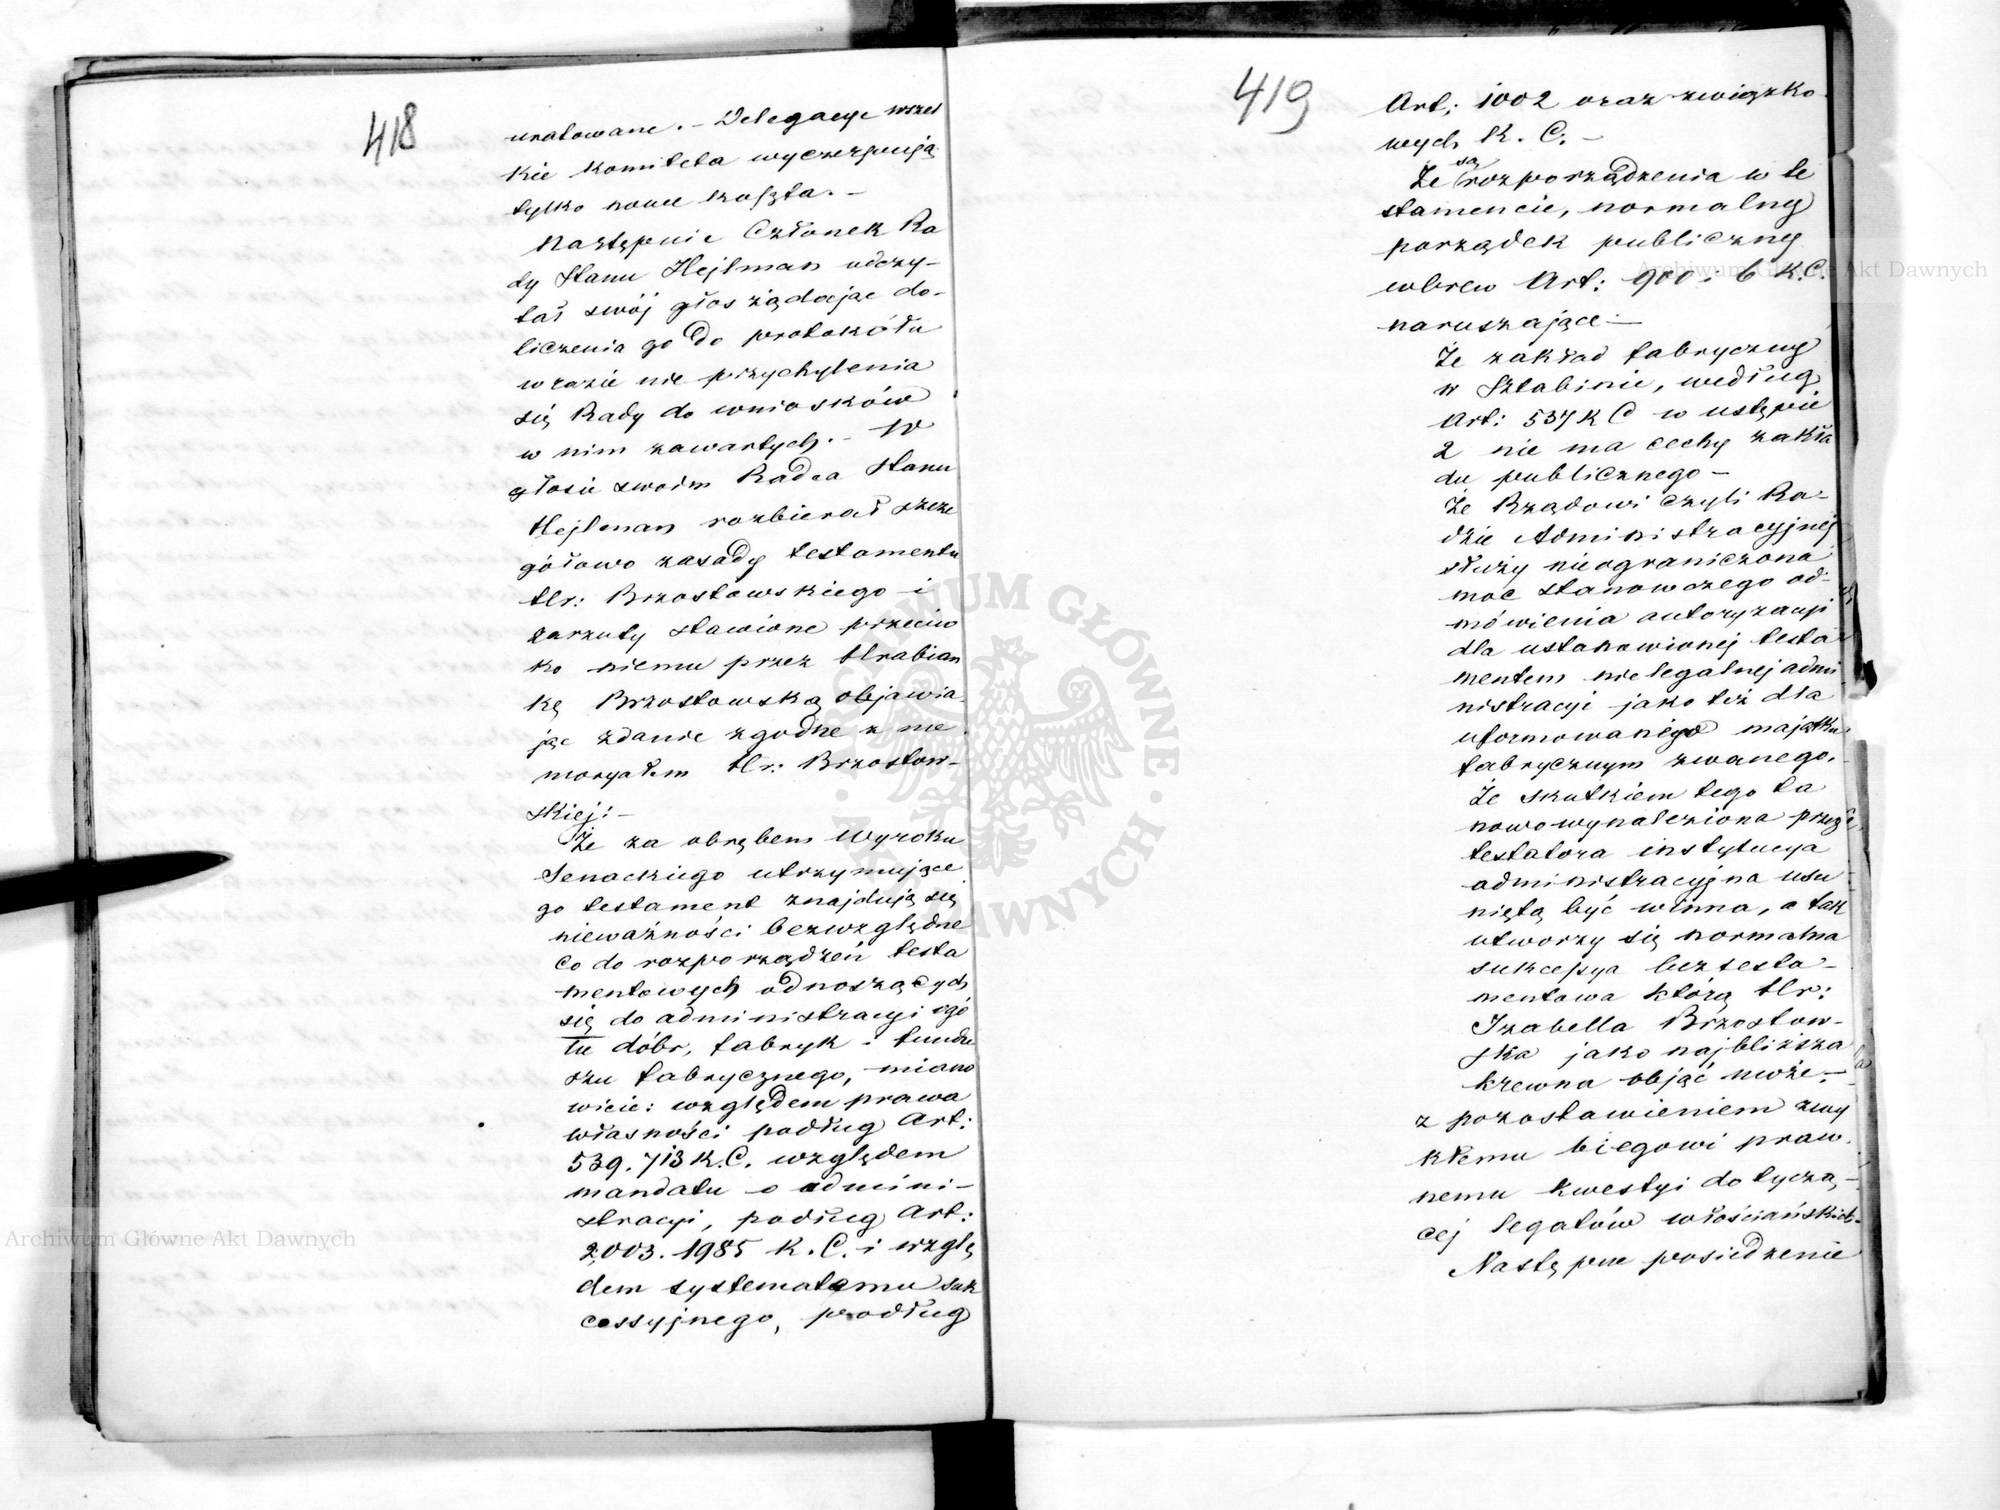 418
uratowane. – Delegacye wszel
kie komiteta wyczerpują
tylko nowe koszta. –
Następnie Członek Ra
dy Stanu Hejlman odczy-
tał swój głos żądając do-
liczenia go do protokółu
w razie nie przychylenia
się Rady do wniosków
w nim zawartych. – W
głosie swoim Radca Stanu
Hejlman rozbierał szcze
gółowo zasady testamentu
Hr: Brzostowskiego i
zarzuty stawione przeciw
ko niemu przez Hrabian
kę Brzostowską objawia
jąc zdanie zgodne z me
moryałem Hr: Brzostow-
skiej: –
Że za obrębem Wyroku
Senackiego utrzymujące
go testament znajdują się
nieważności bezwzględne
co do rozporządzeń testa
mentowych odnoszących
się do administracyi ogó
łu dóbr, fabryk i fundu
szu fabrycznego, miano
wicie: względem prawa
własności podług Art:
539. 713 K.C. względem
mandatu o admini-
stracyi, podług Art:
2,003. 1985 K. C. i wzglę
dem systematemu suk
cessyjnego, podług
419
Art: 1002 oraz związko
wych K. C. –
Że są rozporządzenia w te
stamencie, normalny
porządek publiczny
wbrew Art: 900 i 6 K.C.
naruszające –
Że zakład fabryczny
w Sztabinie, według
Art: 537 K C w ustępie
2 nie ma cechy zakła
du publicznego –
Że Rządowi czyli Ra-
dzie Administracyjnej
służy nieograniczona
moc stanowczego od-
mówienia autoryzacyi
dla ustanowionej testa
mentem nielegalnej admi
nistracyi jako też dla
uformowanego majątku
fabrycznym zwanego.
Że skutkiem tego ta
nowowynaleziona przez
testatora instytucya
administracyjna usu
niętą być winna, a tak
utworzy się normalna
sukcessya beztesta-
mentowa którą Hr:
Izabella Brzostow-
ska jako najbliższa
krewna objąć może. –
z pozostawieniem zwy
kłemu biegowi praw
nemu kwestyi dotyczą-
cej legatów włościańskich.
Następne posiedzenie
Archiwum Główne Akt Dawnych
Archiwum Główne Akt Dawnych
ARCHIWUM GŁÓWNE AKT DAWNYCH